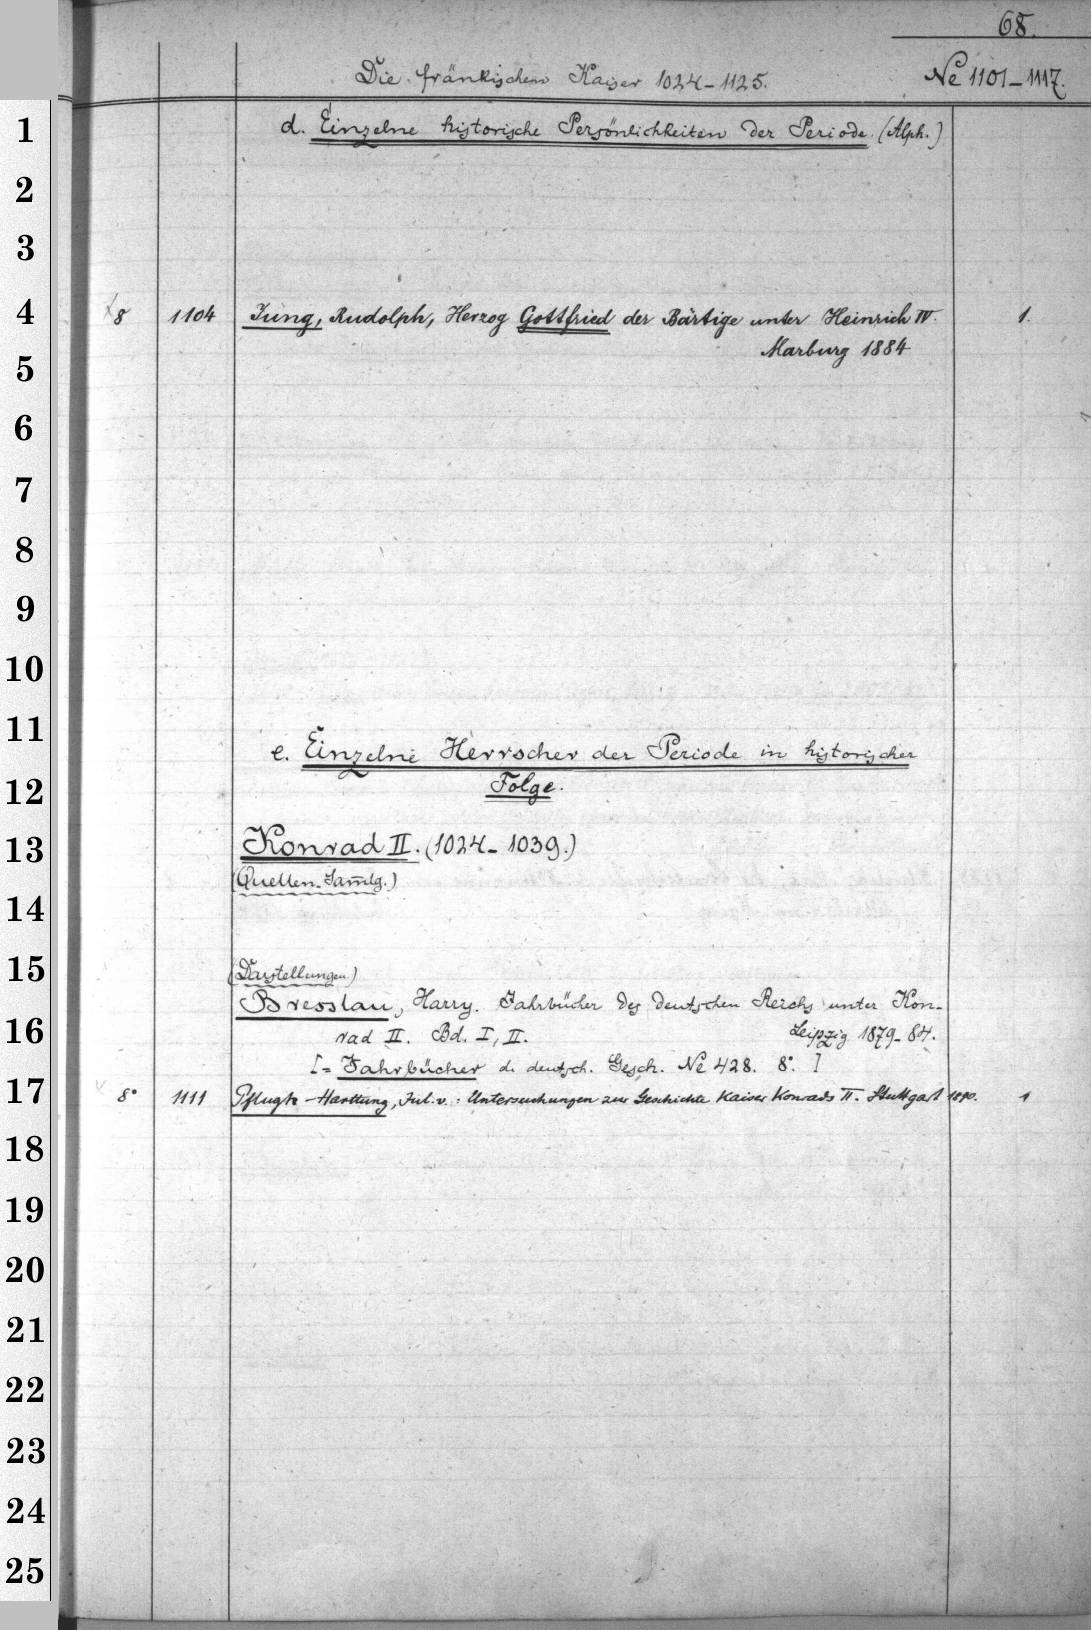 68.
Die fränkischen Kaiser 1024-1125. № 1101-1117.
1 d. Einzelne historische Persönlichkeiten der Periode. (Alph.)
2
3
4 8 1104 Jung, Rudolph, Herzog Gottfried der Bärtige unter Heinrich IV. 1.
Marburg 1884
5
6
7
8
9
10
11
e. Einzelne Herrscher der Periode in historischer
12 Folge.
13 Konrad II. (1024-1039.)
(Quellen-Samlg.)
14
15 (Darstellungen)
Bresslau, Harry. Jahrbücher des deutschen Reichs unter Kon-
16 rad II. Bd. I, II. Leipzig 1879-84.
[= Jahrbücher d. deutsch. Gesch. № 428. 8°. ]
17 8° 1111 Pflugk-Harttung, Jul. v.: Untersuchungen zur Geschichte Kaiser Konrads II. Stuttgart 1890. 1
18
19
20
21
22
23
24
25